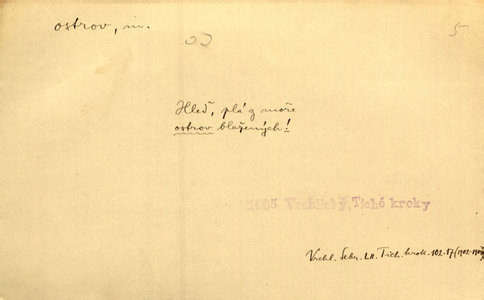 ostrov, m.
5
Hleď, plá z moře
ostrov blažených!
1905 Vrchlický, Tiché kroky
Vrchl. Sebr. LII. Tich. krok. 102. 17